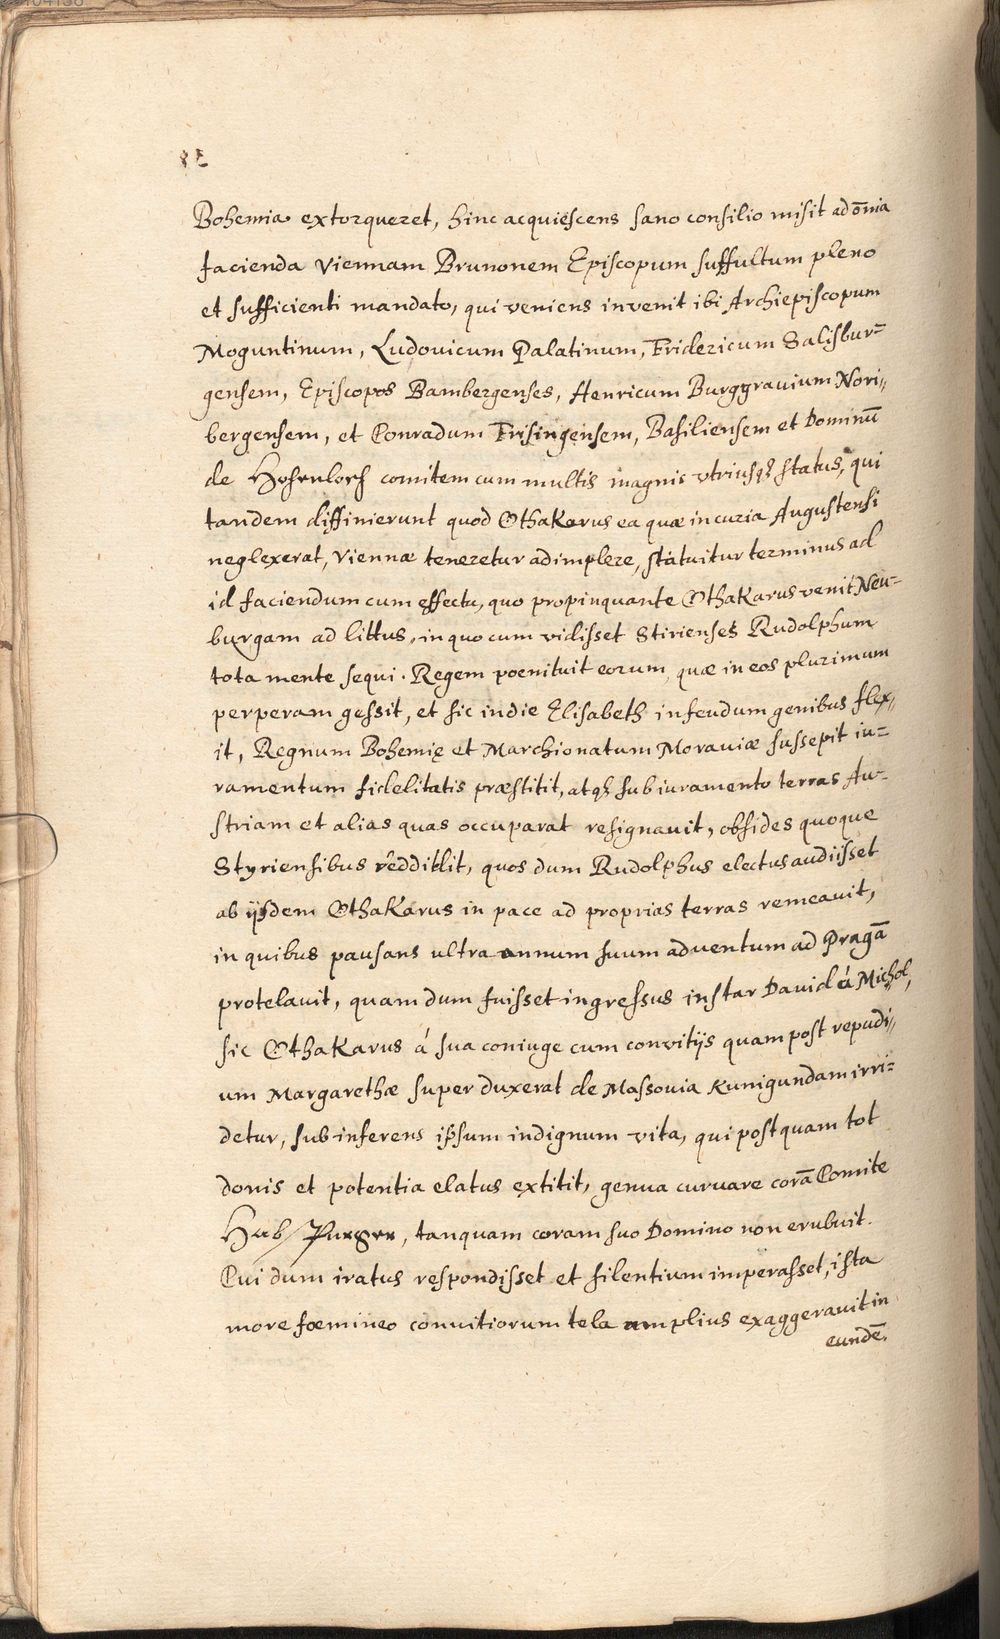 Bohemia extorqueret, hinc acquiëscens sano consilio misit ad oĩnia
facienda Viennam Brunonem Episcopum suffultum pleno
et sufficienti mandato, qui veniens invenit ibi Archiepiscopum
Moguntinum, Ludovicum Palatinum, Fridericum Salisbur=
gensem, Episcopos Bambergenses, Henricum Burggravium Nori,,
bergensem, et Conradum Frisingensem, Basiliensem et Dominũ
de Hohenloch comitem cum multis magnis vtriusqȝ status, qui
tandem diffinierunt quod Othakarus ea quæ in curia Augustensi
neglexerat, Viennæ teneretur adimplere, statuitur terminus ad
id faciendum cum effectu, quo propinquante Othakarus venit Neu=
burgam ad littus, in quo cum vidisset Stirienses Rudolphum
tota mente sequi. Regem poenituit eorum, quæ in eos plurimum
perperam gessit, et sic in die Elisabeth in feudum genibus flex,,
it, Regnum Bohemię et Marchionatum Moraviæ sussepit iu=
ramentum fidelitatis præstitit, atqȝ sub iuramento terras Au=
striam et alias quas occuparat resignauit, obsides quoque
Styriensibus redditlit, quos dum Rudolphus electus audiisset
ab ijsdem Othakarus in pace ad proprias terras remeauit,
in quibus pausans ultra annum suum adventum ad Pragã
protelavit, quam dum fuisset ingressus instar David á Michol,
sic Othakarus á sua coniuge cum convitijs quam post repudi,,
um Margarethæ super duxerat de Massovia Kunigundam irri=
detur, sub inferens ipsum indignum vita, qui postquam tot
donis et potentia elatus extitit, genua curuare corã Comite
Hab/Purger, tanquam coram suo Domino non erubuit.
Qui dum iratus respondisset et silentium imperasset, ista
more foemineo conuitiorum tela amplius exaggerauit in
eundẽ.